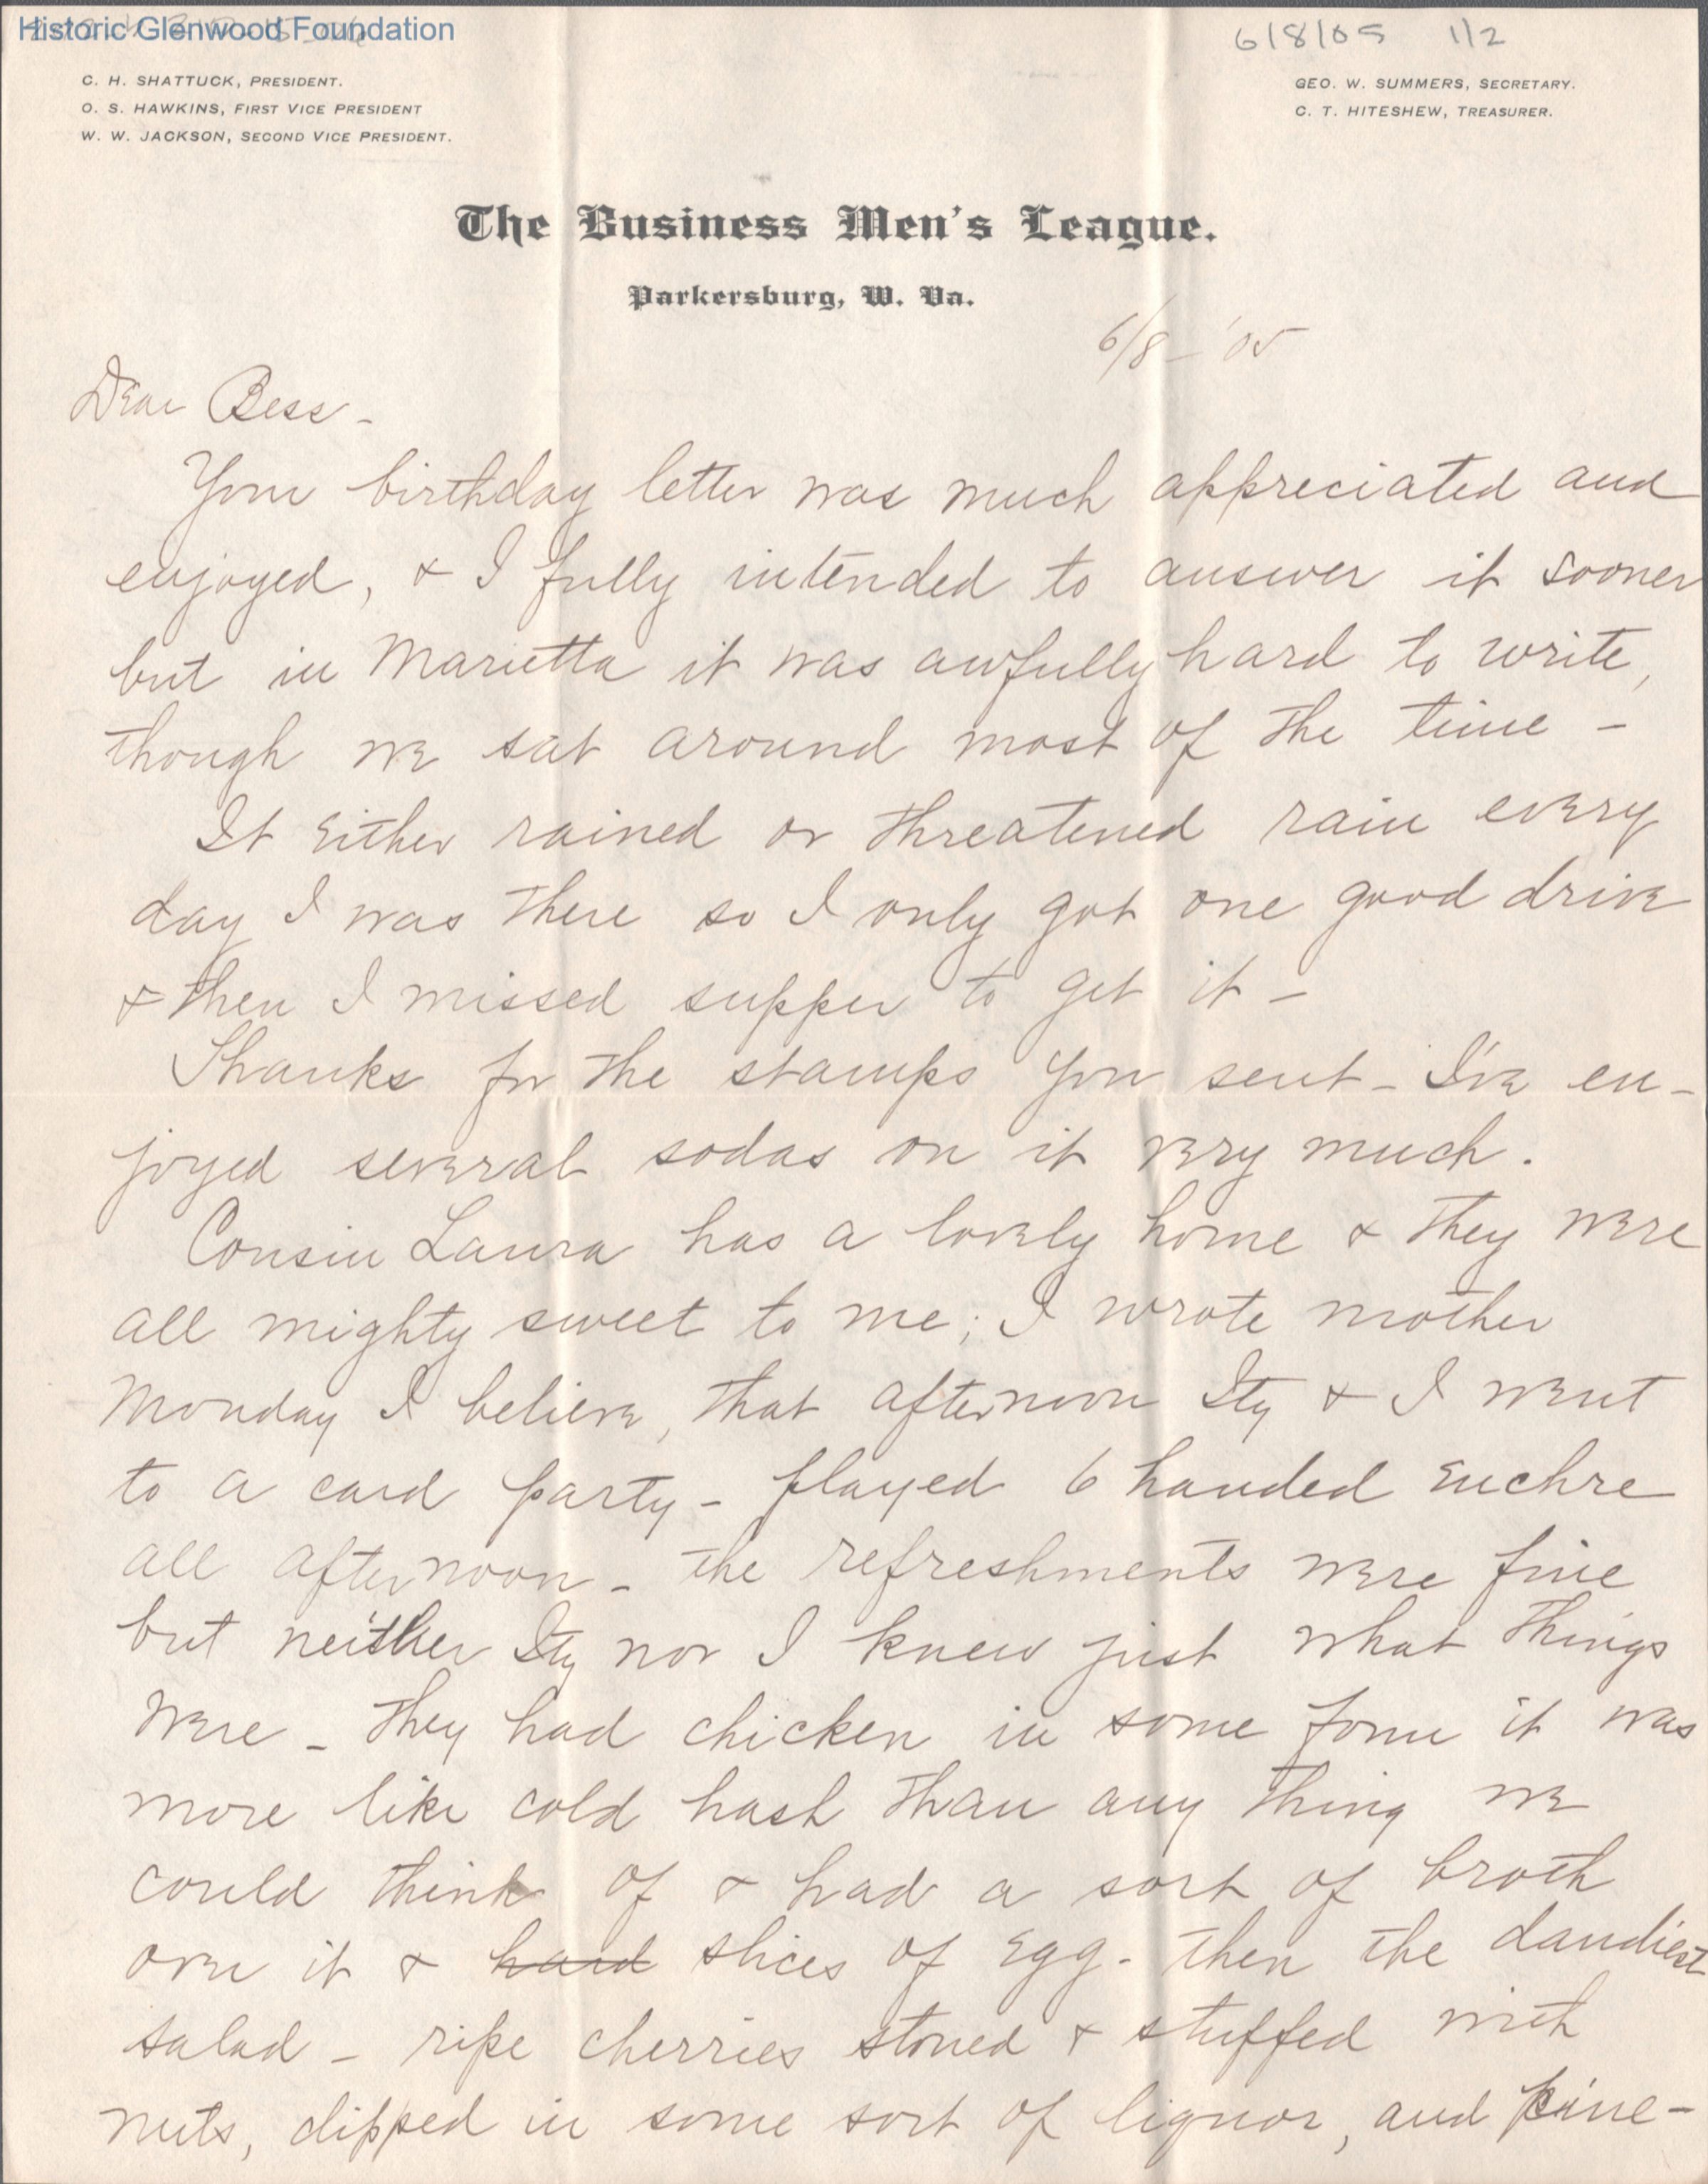 Historic Glenwood Foundation
6/8/05 1/2
C. H. SHATTUCK, PRESIDENT.
O. S. HAWKINS, FIRST VICE PRESIDENT
W. W. JACKSON, SECOND VICE PRESIDENT.
GEO. W. SUMMERS, SECRETARY.
C. T. HITESHEW, TREASURER.
The Business Men's League.
Parkersburg, W. Va.
6/8 - '05
Dear Bess -
Your birthday letter was much appreciated and
enjoyed, & I fully intended to answer it sooner
but in Marietta it was awfully hard to write,
though we sat around most of the time -
It either rained or threatened rain every
day I was there so I only got one good drive
& then I missed supper to get it -
Thanks for the stamps you sent - I've en-
joyed several sodas on it very much.
Cousin Laura has a lovely home & they were
all mighty sweet to me; I wrote mother
Monday I believe, that afternoon Ity & I went
to a card party - played 6 handed euchre
all afternoon - the refreshments were fine
but neither Ity nor I knew just what things
were - they had chicken in some form it was
more like cold hash than any thing we
could think of & had a sort of broth
over it & hard slices of egg - then the dandiest
salad - ripe cherries stoned & stuffed with
nuts, dipped in some sort of liquor, and pine-